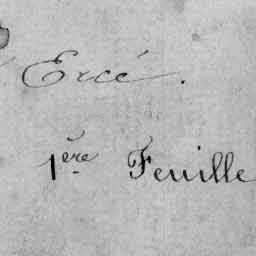 Ercé.
1ère Feuille